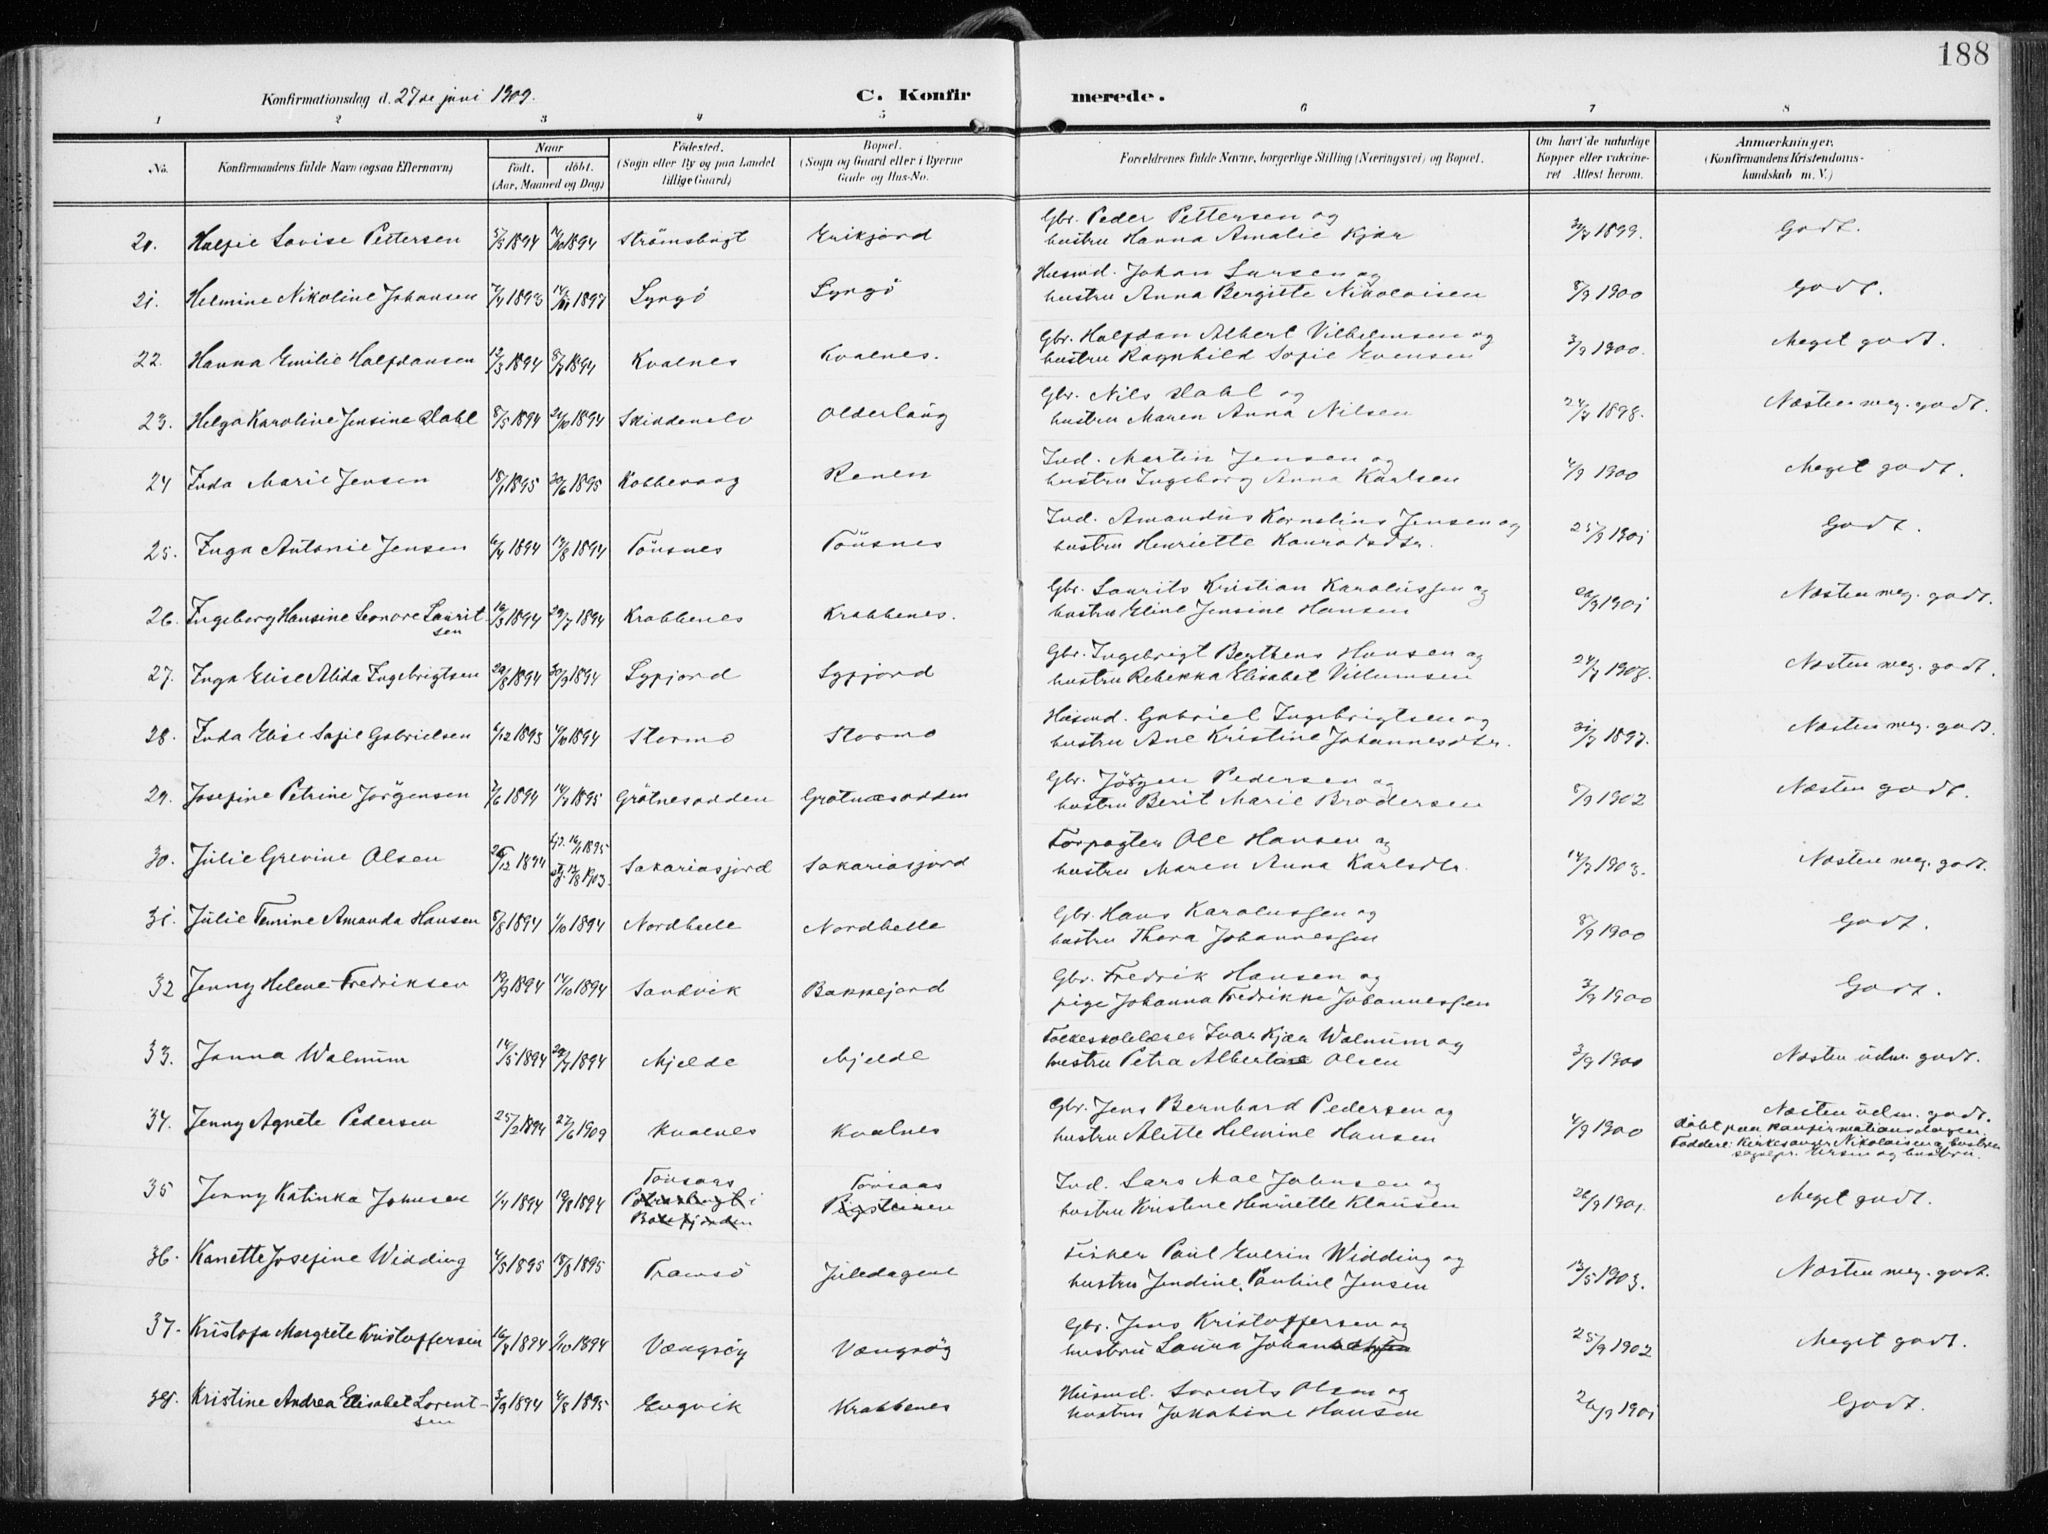 188
Konfirmationsdag d. 27de juni 1909.
C. Konfirmerede.
1 2 3 4 5 6 7 8
No. Konfirmandens fulde Navn (ogsaa Efternavn) Naar født. døbt. (Aar, Maaned og Dag) Fødested. (Sogn eller By og paa Landet tillige Gaard) Bopæl. (Sogn og Gaard eller i Byerne Gade og Hus-No. Forældrenes fulde Navne, borgerlige Stilling (Næringsvei) og Bopæl. Om havt de naturlige Kopper eller vakcineret Attest herom. Anmærkninger. (Konfirmandens Kristendomskundskab m. V.)
20. Lovise Pettersen 1894 1894 Strømsbugt Erikfjord Gbr. Peder Pettersen og hustru Hanna Amalie Kjær 1899. Godt.
21. Helmine Nikoline Johansen 1893 Lyngø Lyngø Husmd. Johan Larsen og hustru Anna Bergitte Nikolaisen 8/9 1900 Godt.
22. Hanna Emilie Halfdansen 12/3 1894 1894 Kvalnes Kvalnes. Gbr. Halfdan Albert Vilhelmsen og hustru Ragnhild Sofie Evensen 3/9 1900. Meget godt.
23. Helga Karoline Jensine Dahl 8/5 1894 1894 Skiddenelv Gbr. Nils Dahl og hustru Maren Anna Nilsen 1898. Næsten meg. godt.
24 Inda Marie Jensen 18/1 1895 30/6 1895 Kobbevaag Renen Ind. Martin Jensen og hustru Ingeborg Anna Karlsen 4/9 1900 Meget godt.
25. Inga Antonie Jensen 1894 1894 Tønsnes Tønsnes Ind. Amandus Kornelius Jensen og hustru Henriette Konradsdtr. 25/9 1901 Godt.
26. Ingeborg Hansine Leonore Lauritsen 16/3 1894 29/7 1894 Krabbenes Krabbenes. Gbr. Laurits Kristian Karolussen og hustru Eline Jensine Hansen 1901 Næsten meg. godt.
27. Inga Elise Alida Ingebrigtsen 29/8 1894 30/9 1894 Lyfjord Lyfjord Gbr. Ingebrigt Berthens Hansen og hustru Rebekka Elisabet Villumsen 1908. Næsten meg. godt.
28. Inda Elise Sofie Gabrielsen 1893 1894 Stormo Stormo Husmd. Gabriel Ingebrigtsen og hustru Ane Kristine Johannesdtr. 1897. Næsten meg. godt.
29. Josefine Petrine Jørgensen 1894 1895 Grøtnesodden Grøtnæsodden Gbr. Jørgen Pedersen og hustru Berit Marie Brodersen 8/9 1902 Næsten godt.
30. Julie Grevine Olsen 26/12 1894 1895 1903. Sakariasfjord Sakariasfjord Forpagter Ole Hansen og hustru Maren Anna Karlsdtr. 1903. Næsten meg. godt.
31. Julie Temine Amanda Hansen 8/8 1894 1/10 1894 Nordhelle Nordhelle Gbr. Hans Karolussen og hustru Thora Johannessen 8/9 1900 Godt.
32 Jenny Helene Fredriksen 19/9 1894 14/10 1894 Sandvik Bakkejord Gbr. Fredrik Hansen og pige Johanna Fredrikke Johannessen 3/9 1900 Godt.
33. Janna Walnum 14/5 1894 29/7 1894 Mjelde Mjelde Folkeskolelærer Ivar Kjær Walnum og hustru Petra Albertine Olsen 3/9 1900 Næsten udm. godt.
34. Jenny Agnete Pedersen 25/2 1894 27/6 1909 Kvalnes Kvalnes Gbr. Jens Bernhard Pedersen og hustru Alette Helmine Hansen 4/9 1900 Næsten udm. godt. døbt paa konfirmationsdagen. Faddere: Kirkesanger Nikolaisen og hustru og hustru.
35 Jenny Katinka Johnsen 1/4 1894 19/8 1894 Tønsaas Tønsaas Ind. Lars Johnsen og hustru Kristine Henriette Klausen 26/9 1901. Meget godt.
36. Kanette Josefine Widding 4/5 1895 18/8 1895 Tromsø Juledagene Fisker Paul Everin Widding og hustru Jendine Pauline Jensen 13/5 1903. Næsten meg. godt.
37. Kristofa Margrete Kristoffersen 1894 1894 Vængsøy Vængsøy Gbr. Jens Kristoffersen og hustru Laura 25/9 1902 Meget godt.
38. Kristine Andrea Elisabet Lorentsen 3/9 1894 4/8 1895 Engvik Krabbenes Husmd. Lorents Olsen og hustru Jakobine Hansen 26/9 1901 Godt.